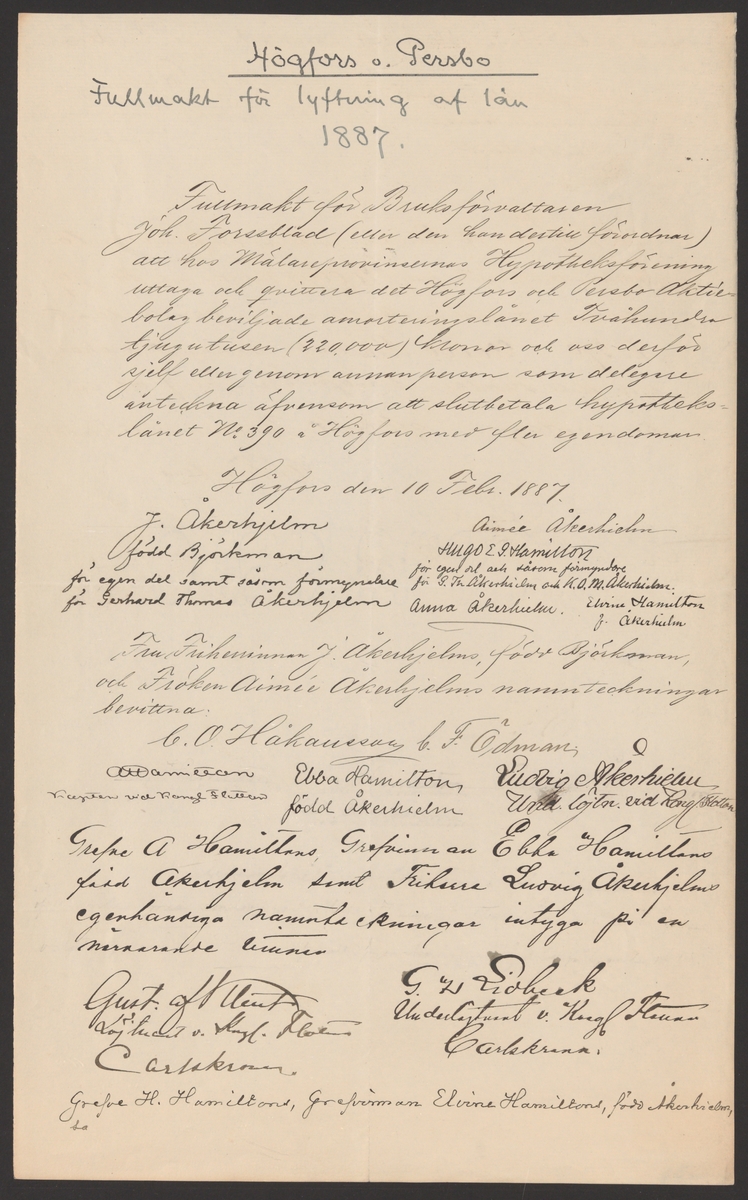 Högfors o. Persbo
Fullmakt för lyftning af lån
1887.
Fullmakt för Bruksförvaltaren
Joh. Forssblad (eller den han dertill förordnar)
att hos Mälareprovinsernas Hypotheksförening
uttaga och qvittera det Högfors och Persbo Aktie-
bolag beviljade amorteringslånet Tvåhundra
tjugutusen (220,000) kronor och oss derför
sjelf eller genom annan person som delegare
anteckna äfvensom att slutbetala hypotheks-
lånet No 390 å Högfors med fler egendomar.
Högfors den 10 Febr. 1887.
J. Åkerhjelm
född Björkman
för egen del samt såsom förmyndare
för Gerhard Thomas Åkerhjelm
Aimée Åkerhielm
Hugo E G Hamilton
för egen del och såsom förmyndare
för G. Th. Åkerhielm och K. O. M. Åkerhielm.
Anna Åkerhielm. Elvine Hamilton
f. Åkerhielm
Fru Friherrinnan J. Åkerhjelms, född Björkman,
och Fröken Aimée Åkerhjelms namnteckningar
bevittna:
C. O. Håkansson C. F. Ödman
A Hamilton
Kapten vid Kongl Flottan
Ebba Hamilton
född Åkerhielm
Ludvig Åkerhielm
Und. löjtn. vid Kongl Flottan
Grefve A Hamiltons, Grefvinnan Ebba Hamiltons
född Åkerhjelm samt Friherre Ludvig Åkerhjelms
egenhändiga namnteckningar intyga på en
närvarande vittnen
Gust. af Klint
Löjtnant v. Kngl. Flottan
Carlskrona.
G. W Lidbeck
Underlöjtnant v. Kngl Flottan
Carlskrona.
Grefve H. Hamiltons, Grefvinnan Elvine Hamiltons, född Åkerhielm,